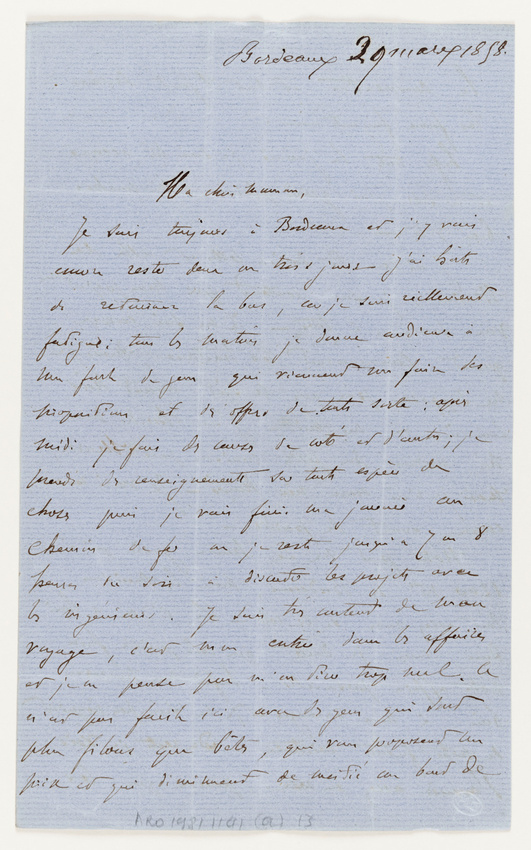 Bordeaux 29 mars 1858.
Ma chère maman,
Je suis toujours à Bordeaux et j'y vais
encore rester deux ou trois jours j'ai hâte
de retourner là bas, car je suis réellement
fatigué; tous les matins je donne audience à
une foule de gens qui viennent me faire des
propositions et des offres de toute sorte; après
midi je fais des courses de côté et d'autre; je
prends des renseignements sur toute espèce de
choses puis je vais finir ma journée au
chemin de fer où je reste jusqu'à 7 ou 8
heures du soir à discuter les projets avec
les ingénieurs. Je suis très content de mon
voyage, c'est mon entrée dans les affaires
et je ne pense pas m'en tirer trop mal. Ce
n'est pas facile ici avec des gens qui sont
plus filous que bêtes, qui vous proposent un
prix et qui diminuent de moitié au bout de
ARO 1981 1141 (a) 13